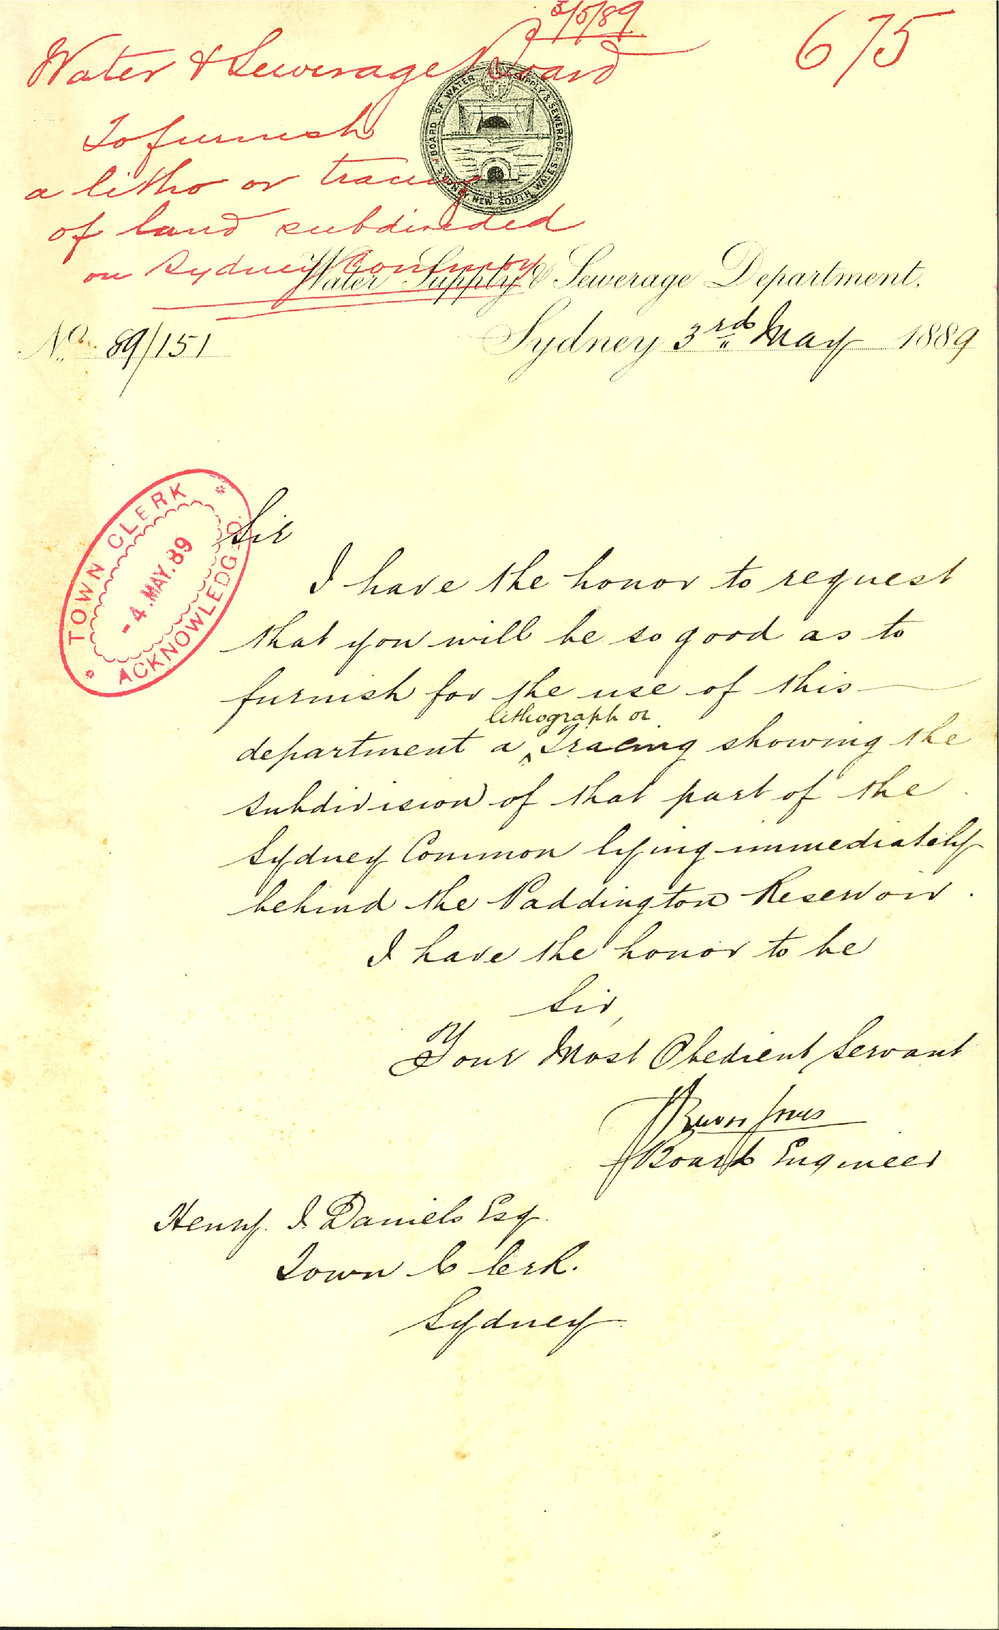 3/5/89
675
Water & Sewerage Board
To furnish
a litho or tracing
of land subdivided
on Sydney Common
BOARD OF WATER SUPPLY & SEWERAGE
SYDNEY, NEW SOUTH WALES
Water Supply & Sewerage Department.
No. 89/151
Sydney 3rd May 1889
TOWN CLERK
- 4. MAY. 89
ACKNOWLEDGD
Sir
I have the honor to request
that you will be so good as to
furnish for the use of this
lithograph or
department a Tracing showing the
subdivision of that part of the
Sydney Common lying immediately
behind the Paddington Reservoir.
I have the honor to be
Sir,
Your Most Obedient Servant
Jones
Board Engineer
Henry. J. Daniels Esq.
Town Clerk.
Sydney